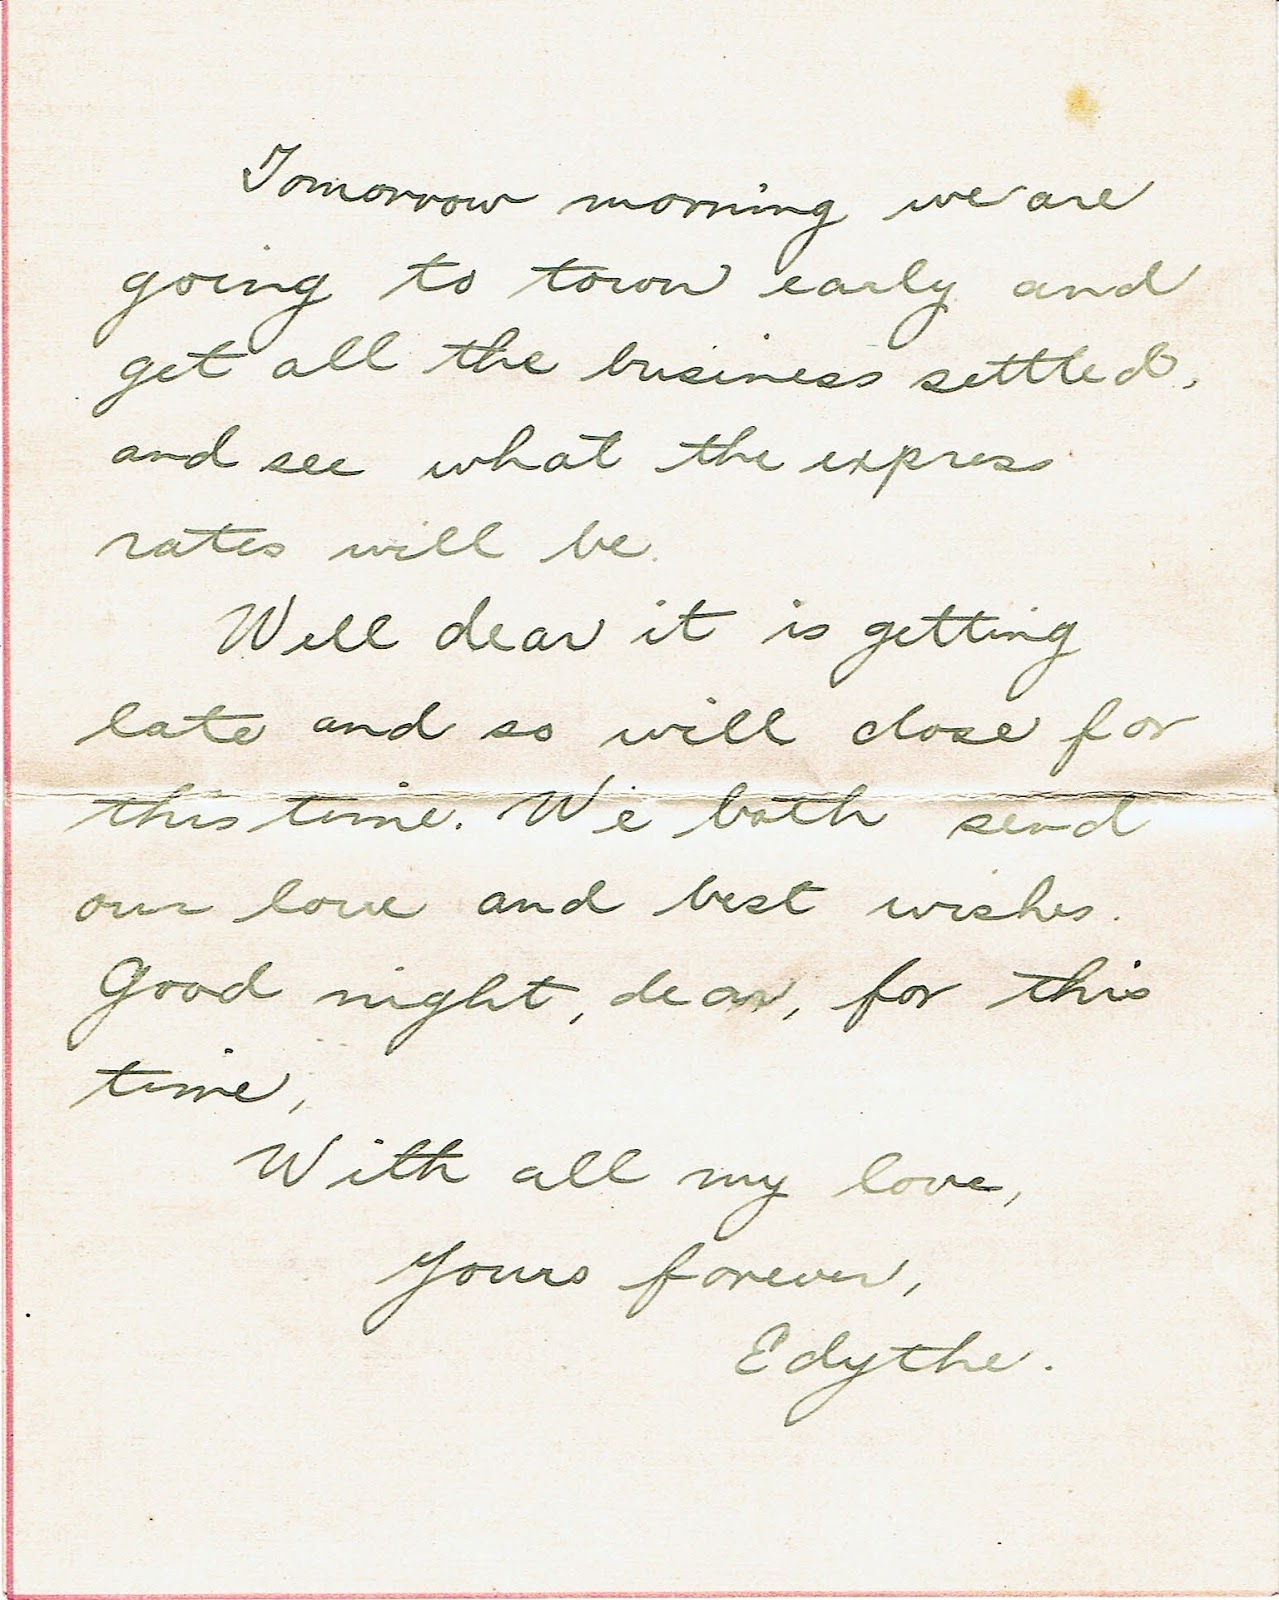 Tomorrow morning we are
going to town early and
get all the business settled,
and see what the express
rates will be.
Well dear it is getting
late and so will close for
this time. We both send
our love and best wishes.
Good night, dear, for this
time,
With all my love,
Yours forever,
Edythe.